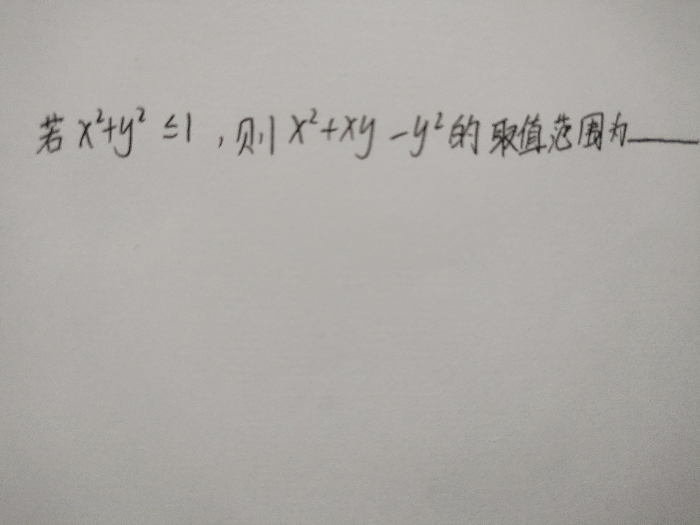 若 x²+y² ≤1 , 则 x²+xy-y²的取值范围为____